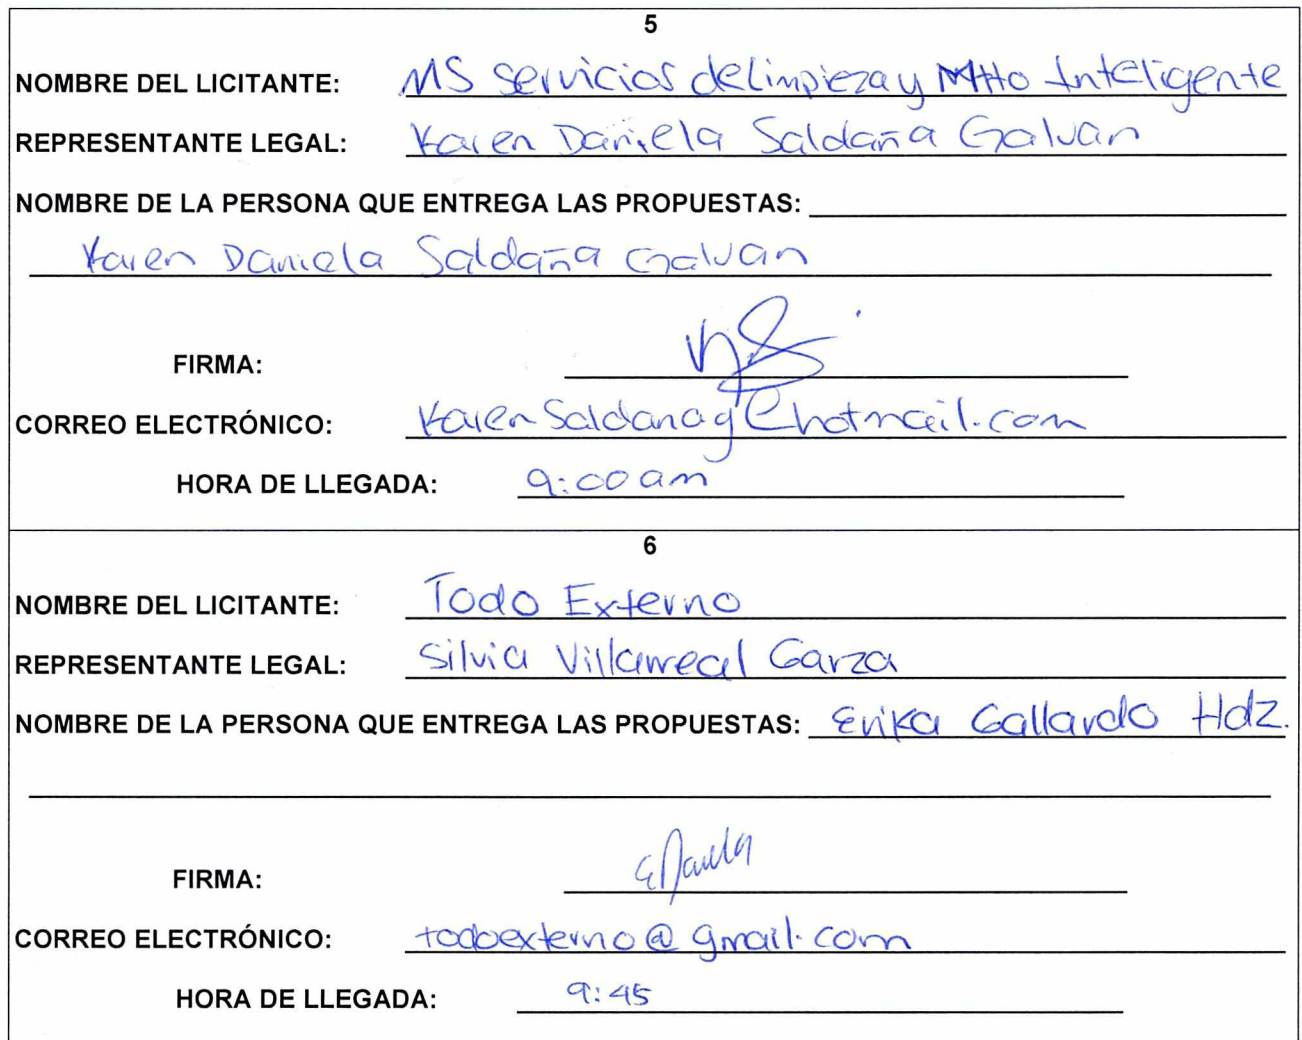 5
NOMBRE DEL LICITANTE: MS Servicios de Limpieza y Mtto Inteligente
REPRESENTANTE LEGAL: Karen Daniela Saldaña Galvan
NOMBRE DE LA PERSONA QUE ENTREGA LAS PROPUESTAS:
Karen Daniela Saldaña Galvan
FIRMA:
CORREO ELECTRÓNICO: KarenSaldanag@hotmail.com
HORA DE LLEGADA: 9:00 am
6
NOMBRE DEL LICITANTE: Todo Externo
REPRESENTANTE LEGAL: Silvia Villarreal Garza
NOMBRE DE LA PERSONA QUE ENTREGA LAS PROPUESTAS: Erika Gallardo Hdz.
FIRMA:
CORREO ELECTRÓNICO: todoexterno@gmail.com
HORA DE LLEGADA: 9:45